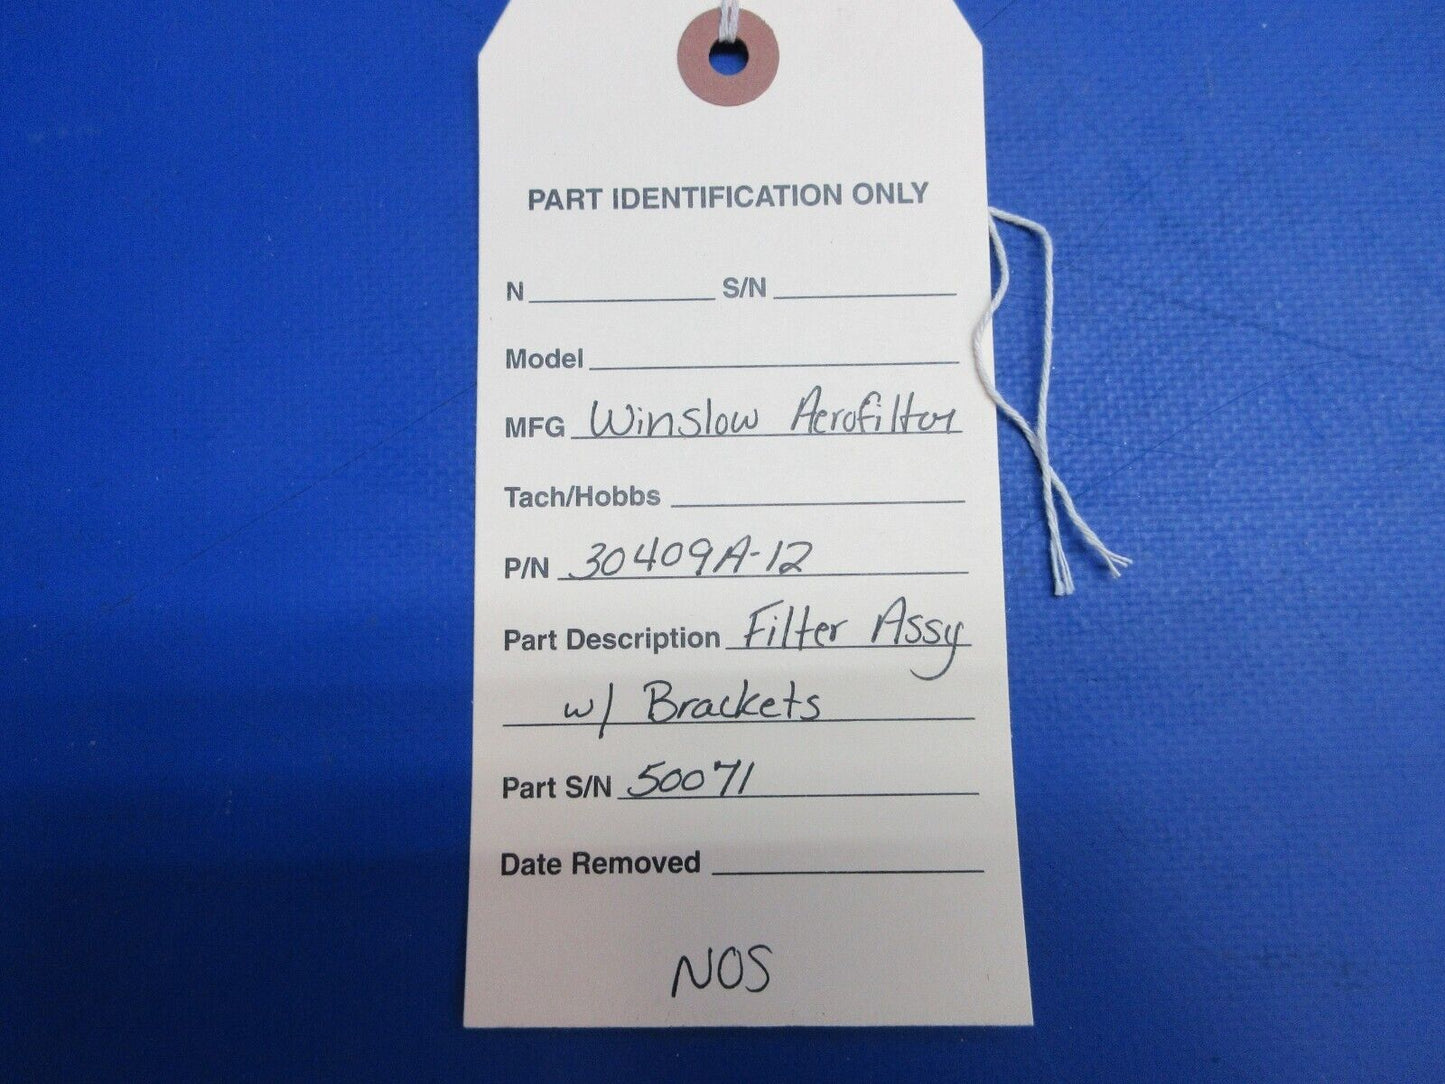 PART IDENTIFICATION ONLY
N S/N
Model
MFG Winslow Aerofilter
Tach/Hobbs
P/N 30409A-12
Part Description Filter Assy
w/ Brackets
Part S/N 50071
Date Removed
NOS